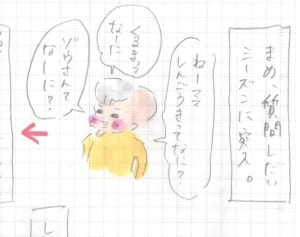 まめ、質問したい
シーズンに突入。
ねーママ
しんごうきってなに？
くるまって
なーに
ゾウさんて
なーに？
し